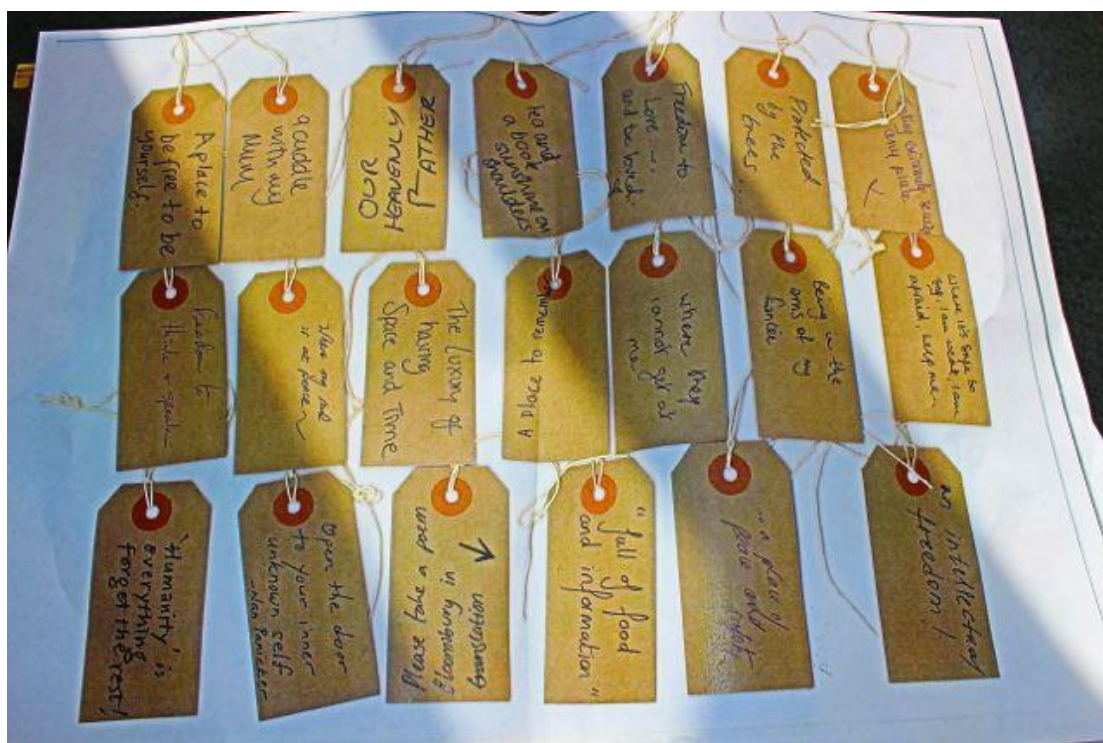 A place to
be free to be
yourself.
a cuddle
with my
Mum
OUR
HERENCLY
RATHER
tea and
a book
sunshine on
shoulders
Freedom to
Love ....
and be loved.
Protected
by the
trees...
any place
X
Freedom to
think + speak
When my me
is at
The Luxury of
having
Space and Time
A place to
where they
cannot get at
me
Being in the
arms of my
where it's safe to
say, I am weak, I am
afraid, help me
'Humanity' is
everything
forget the rest!
Open the door
to your inner
unknown self
Please take a poem
Bloomsbury in
translation
"full of food
and information"
"a place of
peace and safety
an intellectual
freedom!